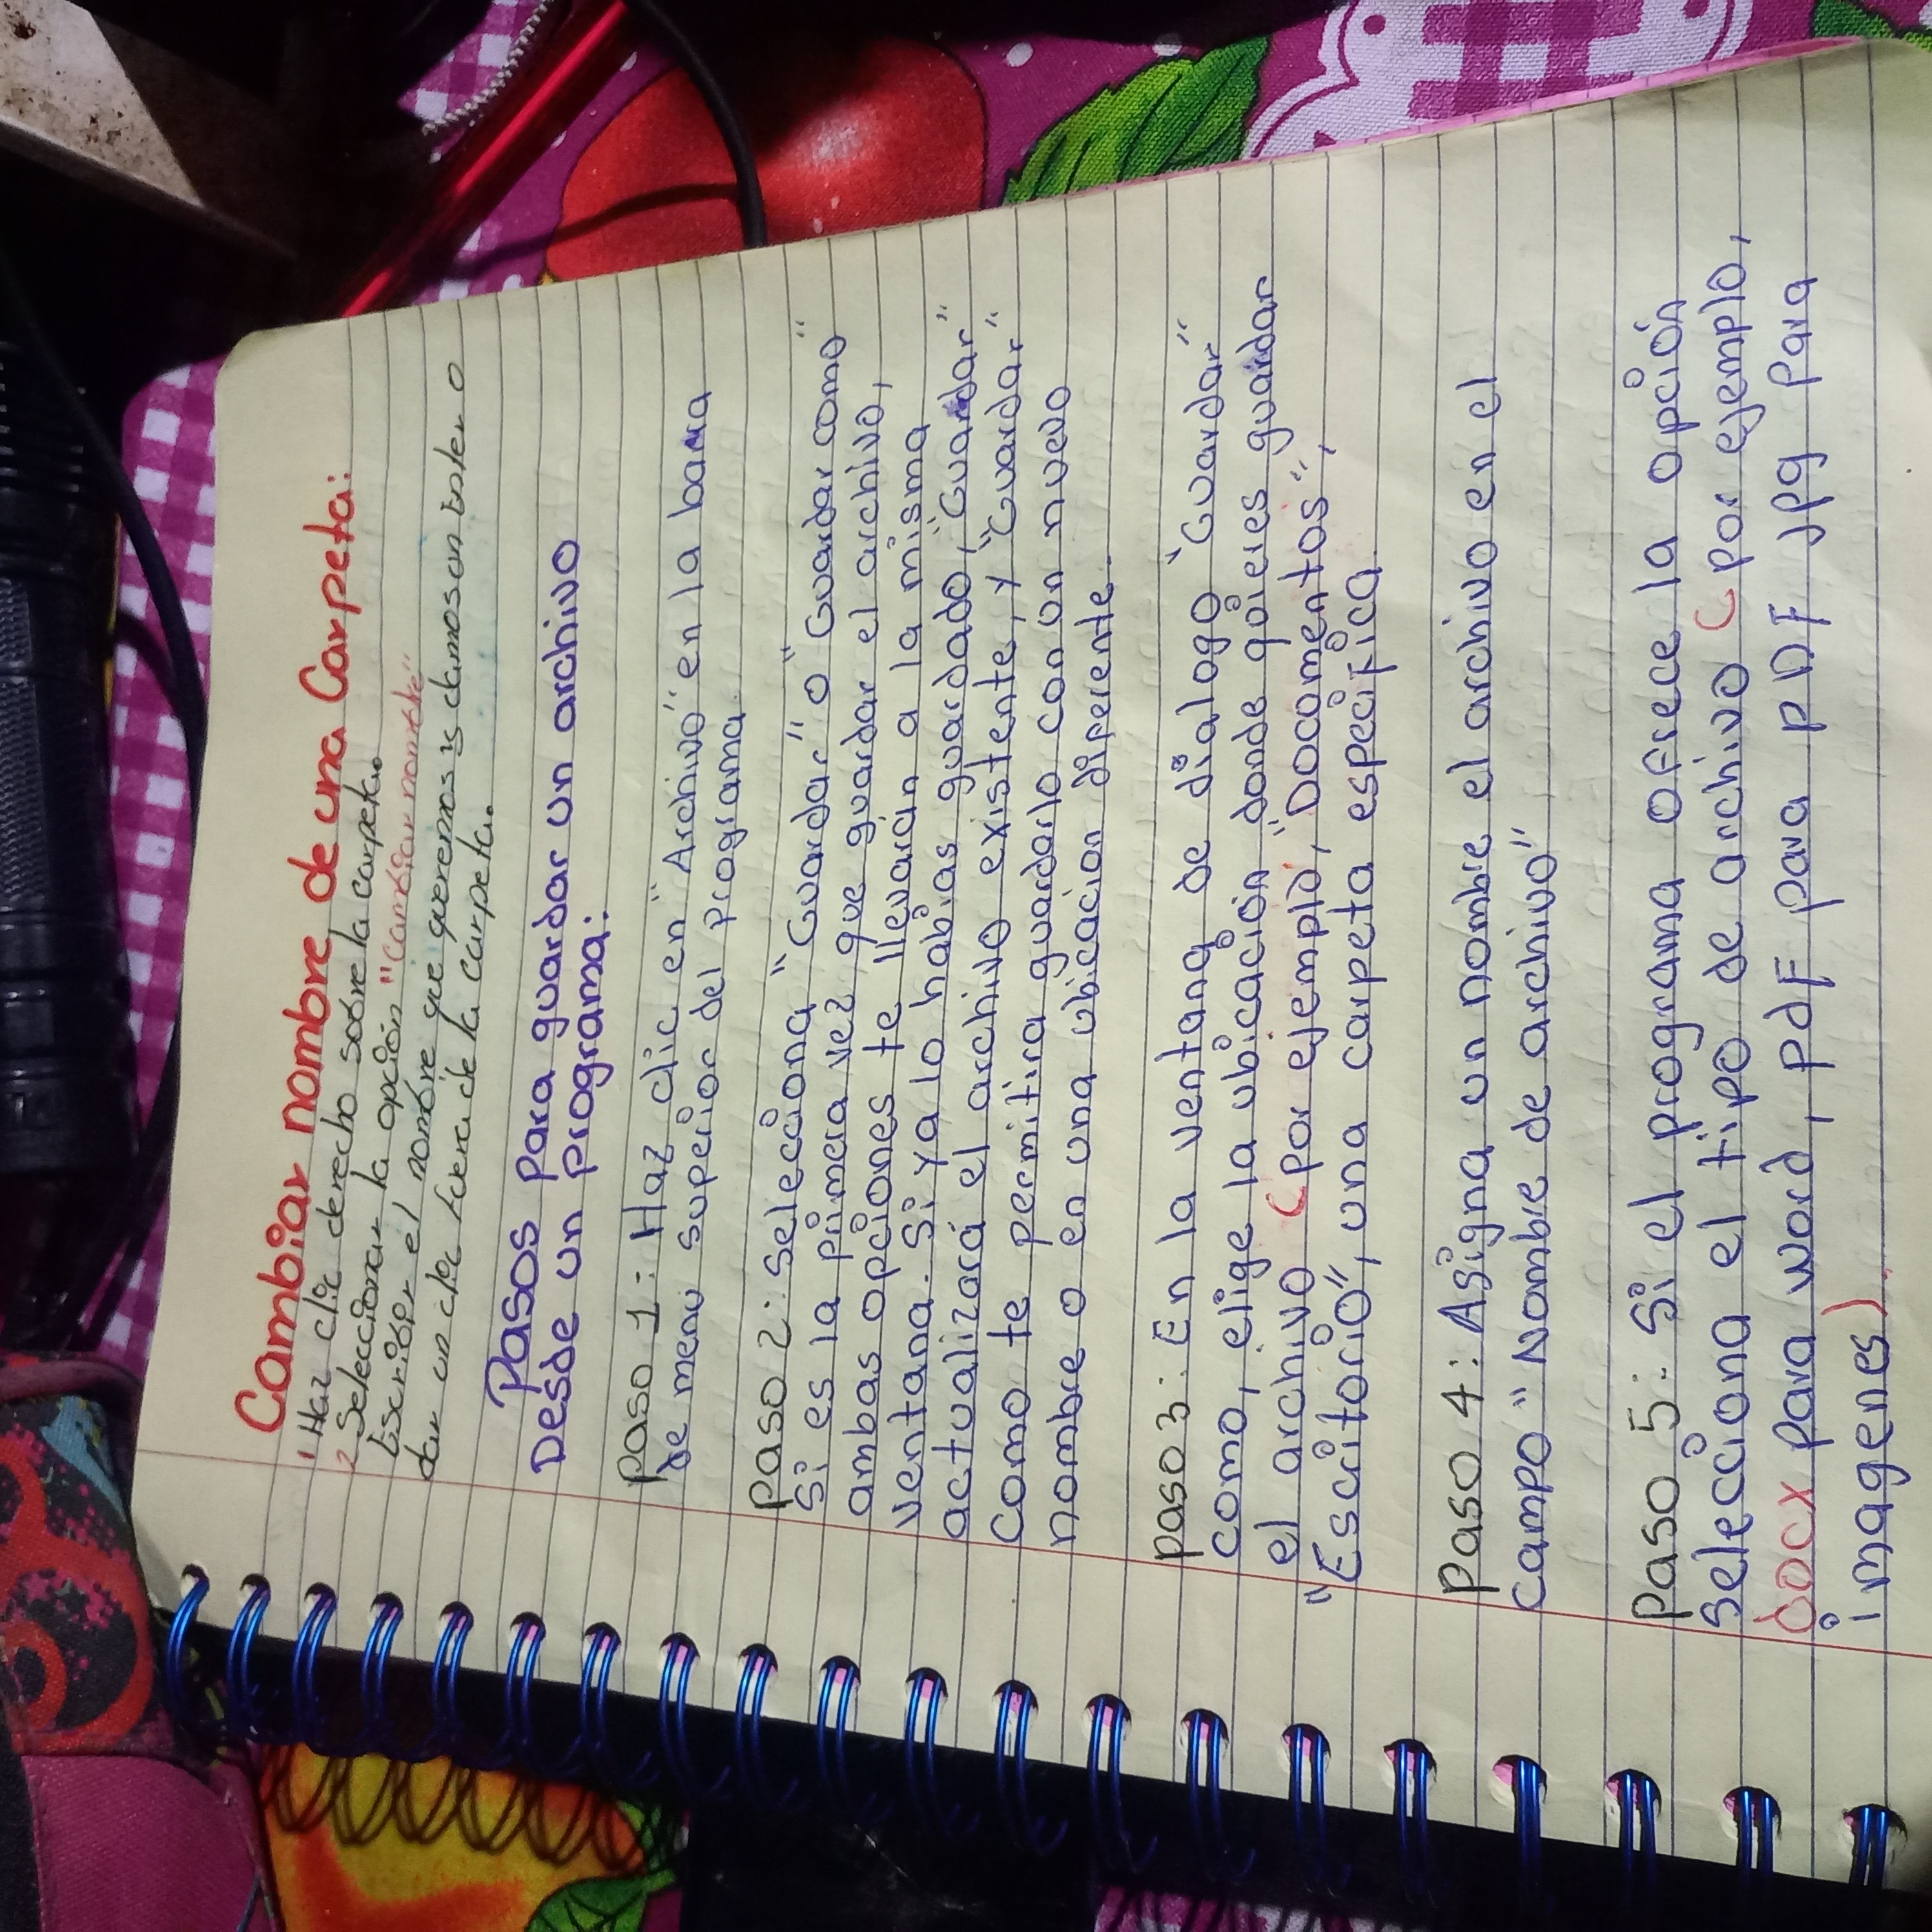 Cambiar nombre de una Carpeta:
1 Haz clic derecho sobre la carpeta
2 Seleccionar la opción "Cambiar nombre"
Escribir el nombre que queremos y damos un enter o
dar un clic fuera de la carpeta.
Pasos para guardar un archivo
Desde un programa:
Paso 1: Haz clic en "Archivo" en la barra
de menu superior del programa.
Paso 2: selecciona "Guardar" o "Guardar como"
Si es la primera vez que guardar el archivo,
ambas opciones te llevarán a la misma
ventana. Si ya lo habias guardado, "Guardar"
actualizará el archivo existente, y "Guardar"
Como te permitira guardarlo con un nuevo
nombre o en una ubicación diferente.
Paso 3: En la ventana de dialogo "Guardar"
como, elige la ubicación donde quieres guardar
el archivo (por ejemplo, "Documentos",
"Escritorio", una carpeta especifica
Paso 4: Asigna un nombre el archivo en el
campo "Nombre de archivo"
Paso 5: Si el programa ofrece la opción
selecciona el tipo de archivo (por ejemplo,
docx para word, pdf para pDF jpg para
imagenes)